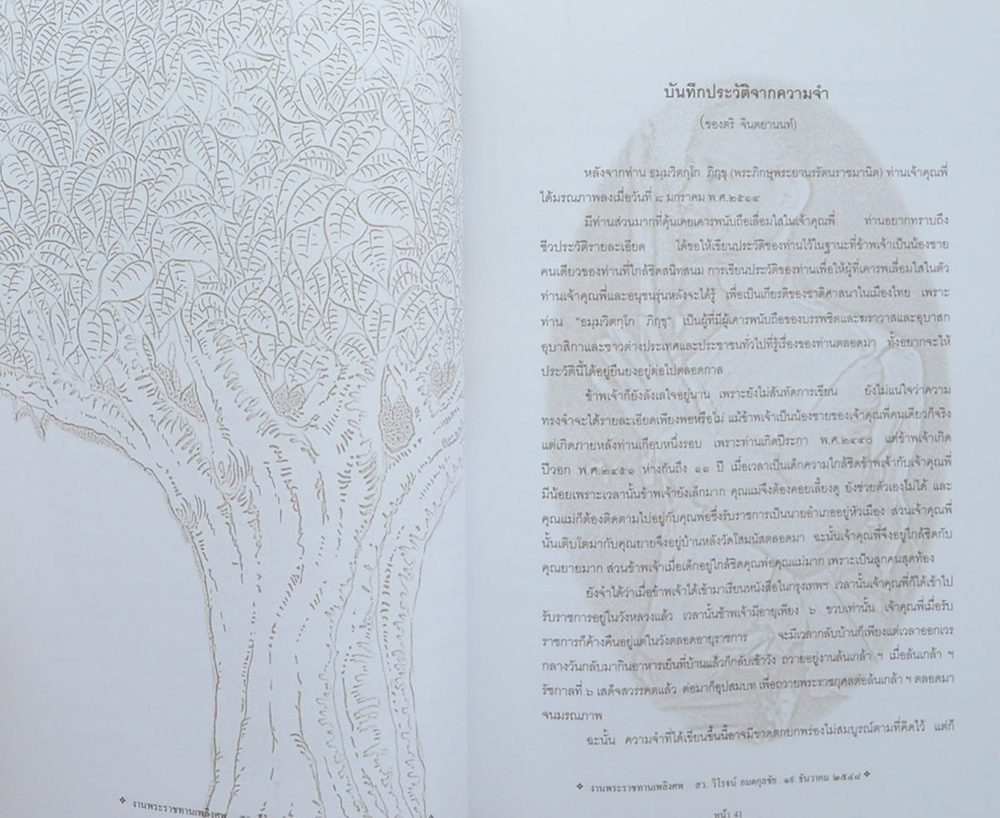 ❖ งานพระราชทานเพลิงศพ
บันทึกประวัติจากความจำ
(ของตริ จินตยานนท์)
หลังจากท่าน ธมฺมวิตกฺโก ภิกฺขุ (พระภิกษุพระยานรรัตนราชมานิต) ท่านเจ้าคุณพี่
ได้มรณภาพลงเมื่อวันที่ ๘ มกราคม พ.ศ.๒๕๑๔
มีท่านส่วนมากที่คุ้นเคยเคารพนับถือเลื่อมใสในเจ้าคุณพี่ ท่านอยากทราบถึง
ชีวประวัติรายละเอียด ได้ขอให้เขียนประวัติของท่านไว้ในฐานะที่ข้าพเจ้าเป็นน้องชาย
คนเดียวของท่านที่ใกล้ชิดสนิทสนม การเขียนประวัติของท่านเพื่อให้ผู้ที่เคารพเลื่อมใสในตัว
ท่านเจ้าคุณพี่และอนุชนรุ่นหลังจะได้รู้ เพื่อเป็นเกียรติของชาติศาสนาในเมืองไทย เพราะ
ท่าน "ธมฺมวิตกฺโก ภิกฺขุ" เป็นผู้ที่มีผู้เคารพนับถือของบรรพชิตและฆราวาสและอุบาสก
อุบาสิกาและชาวต่างประเทศและประชาชนทั่วไปที่รู้เรื่องของท่านตลอดมา ทั้งอยากจะให้
ประวัตินี้ได้อยู่ยืนยงอยู่ต่อไปตลอดกาล
ข้าพเจ้าก็ยังลังเลใจอยู่นาน เพราะยังไม่สันทัดการเขียน ยังไม่แน่ใจว่าความ
ทรงจำจะได้รายละเอียดเพียงพอหรือไม่ แม้ข้าพเจ้าเป็นน้องชายของเจ้าคุณพี่คนเดียวก็จริง
แต่เกิดภายหลังท่านเกือบหนึ่งรอบ เพราะท่านเกิดปีระกา พ.ศ.๒๔๔๐ แต่ข้าพเจ้าเกิด
ปีวอก พ.ศ.๒๔๕๑ ห่างกันถึง ๑๑ ปี เมื่อเวลาเป็นเด็กความใกล้ชิดข้าพเจ้ากับเจ้าคุณพี่
มีน้อยเพราะเวลานั้นข้าพเจ้ายังเล็กมาก คุณแม่จึงต้องคอยเลี้ยงดู ยังช่วยตัวเองไม่ได้ และ
คุณแม่ก็ต้องติดตามไปอยู่กับคุณพ่อซึ่งรับราชการเป็นนายอำเภออยู่หัวเมือง ส่วนเจ้าคุณพี่
นั้นเติบโตมากับคุณยายจึงอยู่บ้านหลังวัดโสมนัสตลอดมา ฉะนั้นเจ้าคุณพี่จึงอยู่ใกล้ชิดกับ
คุณยายมาก ส่วนข้าพเจ้าเมื่อเด็กอยู่ใกล้ชิดคุณพ่อคุณแม่มาก เพราะเป็นลูกคนสุดท้อง
ยังจำได้ว่าเมื่อข้าพเจ้าได้เข้ามาเรียนหนังสือในกรุงเทพฯ เวลานั้นเจ้าคุณพี่ก็ได้เข้าไป
รับราชการอยู่ในวังหลวงแล้ว เวลานั้นข้าพเจ้ามีอายุเพียง ๖ ขวบเท่านั้น เจ้าคุณพี่เมื่อรับ
ราชการก็ค้างคืนอยู่แต่ในวังตลอดอายุราชการ จะมีเวลากลับบ้านก็เพียงแต่เวลาออกเวร
กลางวันกลับมากินอาหารเย็นที่บ้านแล้วก็กลับเข้าวัง ถวายอยู่งานล้นเกล้า ฯ เมื่อล้นเกล้า ฯ
รัชกาลที่ ๖ เสด็จสวรรคตแล้ว ต่อมาก็อุปสมบท เพื่อถวายพระราชกุศลต่อล้นเกล้า ฯ ตลอดมา
จนมรณภาพ
ฉะนั้น ความจำที่ได้เขียนขึ้นนี้อาจมีขาดตกบกพร่องไม่สมบูรณ์ตามที่คิดไว้ แต่ก็
❖ งานพระราชทานเพลิงศพ สว. วิโรจน์ อมตกุลชัย ๑๙ ธันวาคม ๒๕๔๘ ❖
หน้า 41